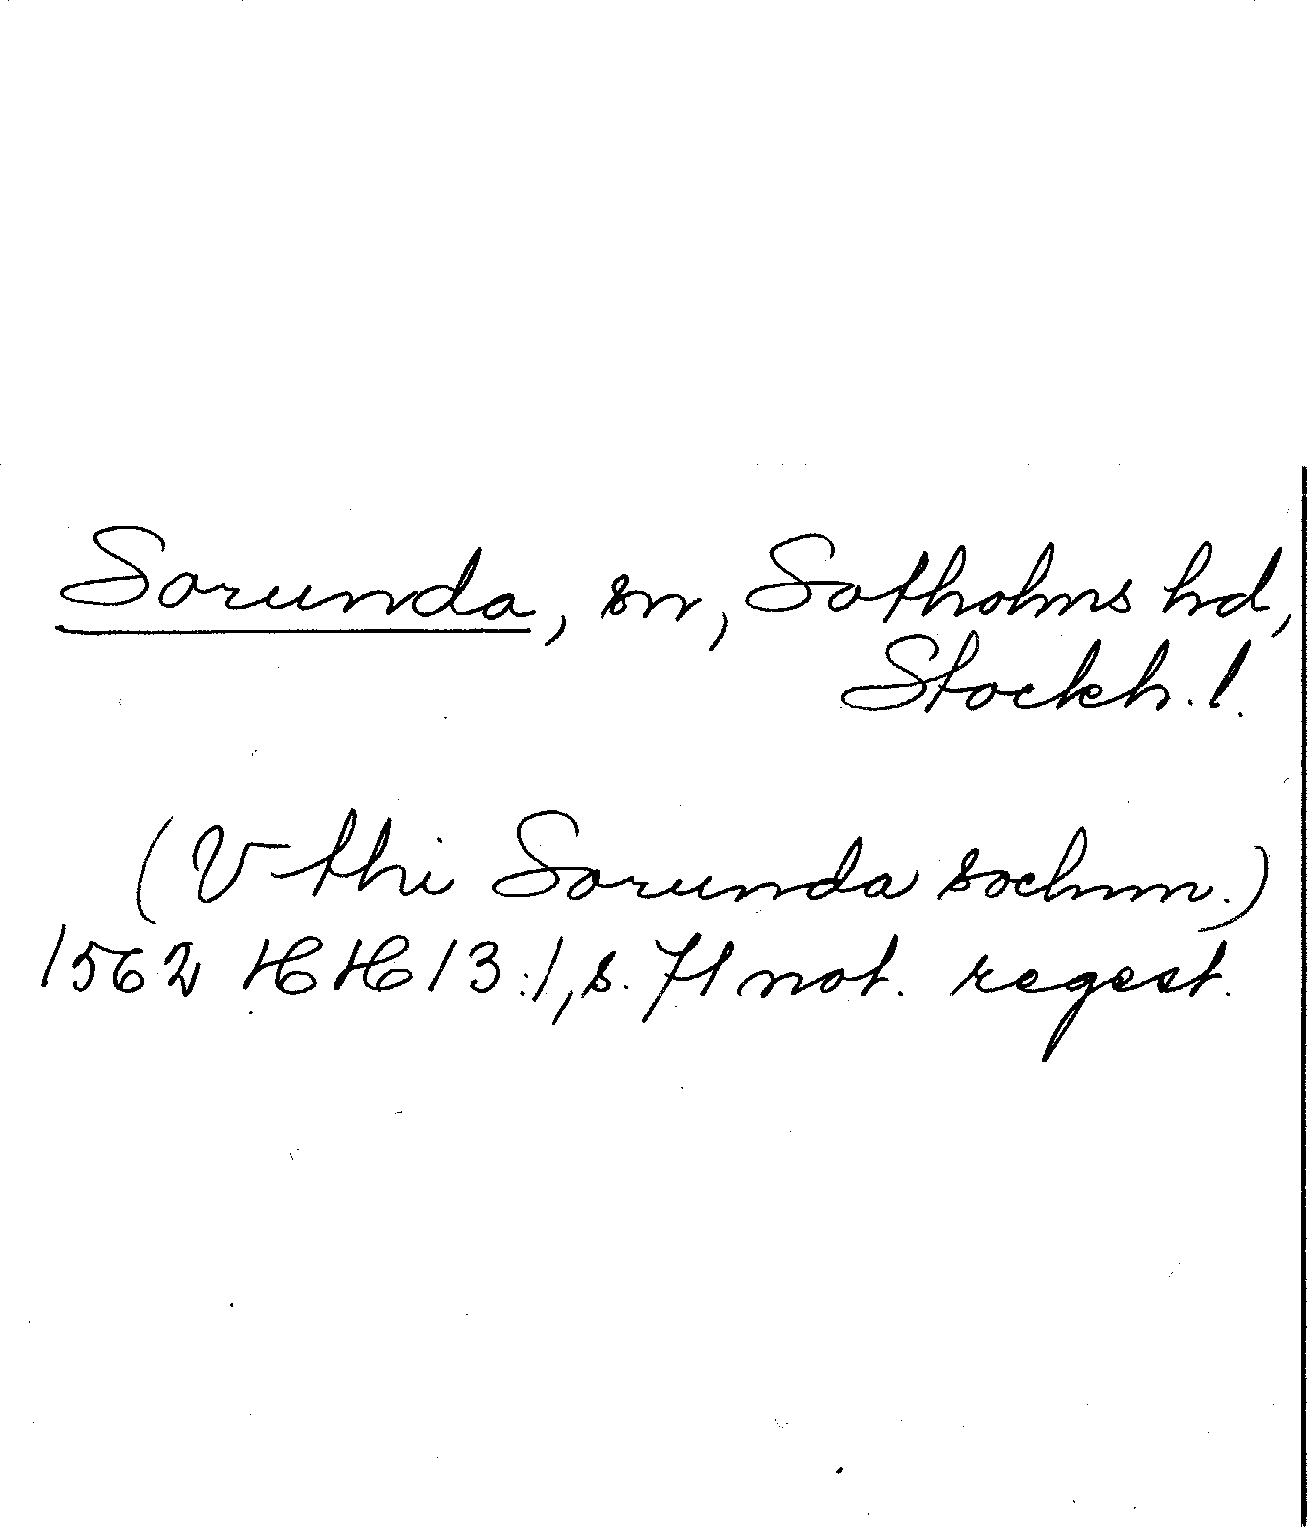 Sorunda, sn, Sotholms hd,
Stockh. l.
(V thi Sorunda sochnn.)
1562 HH 13:1, s. 71 not. regest.